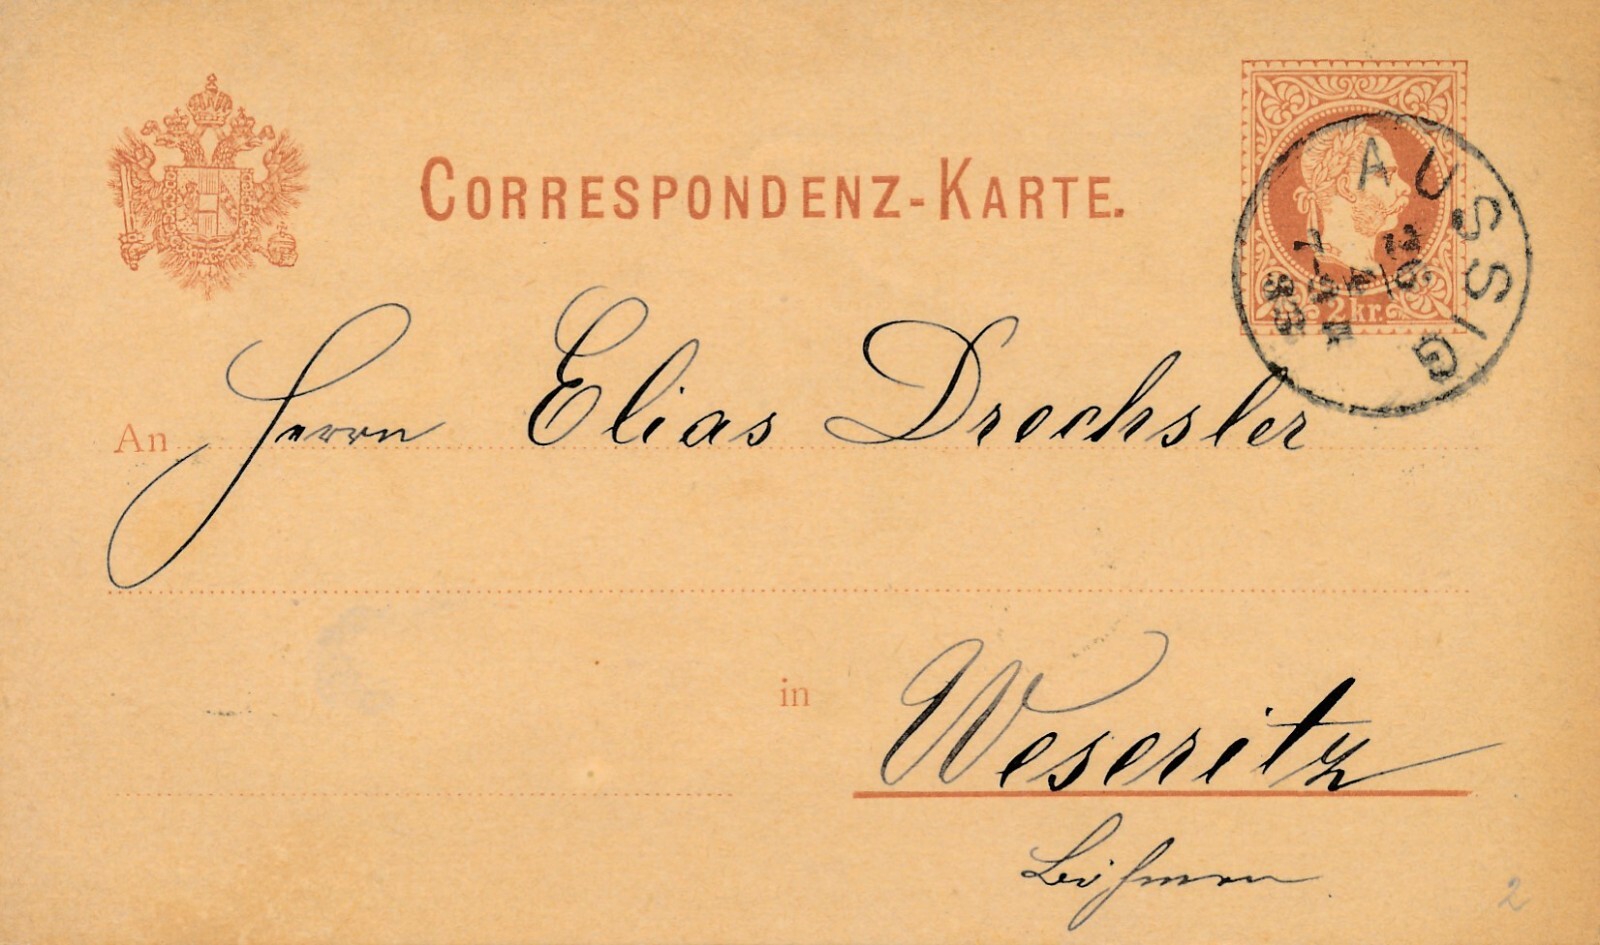 CORRESPONDENZ-KARTE.
2 kr.
AUSSIG
30
4
83
An Herrn Elias Drechsler
in Weseritz
Böhmen
2